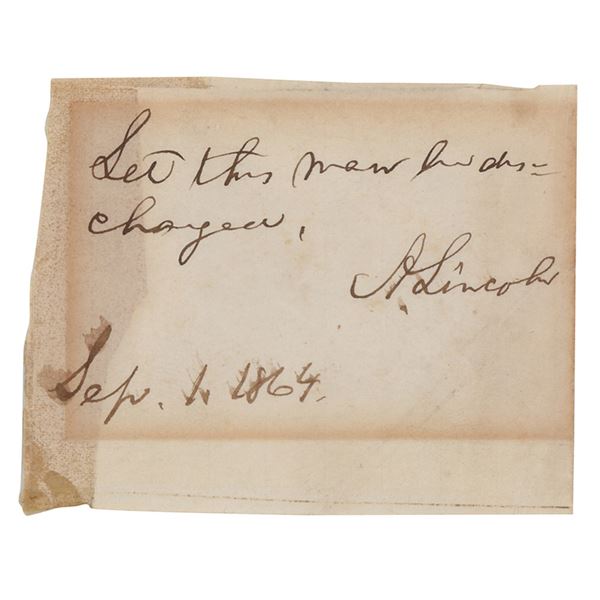 Let this man be dis=
charged.
A. Lincoln
Sep. 1. 1864.